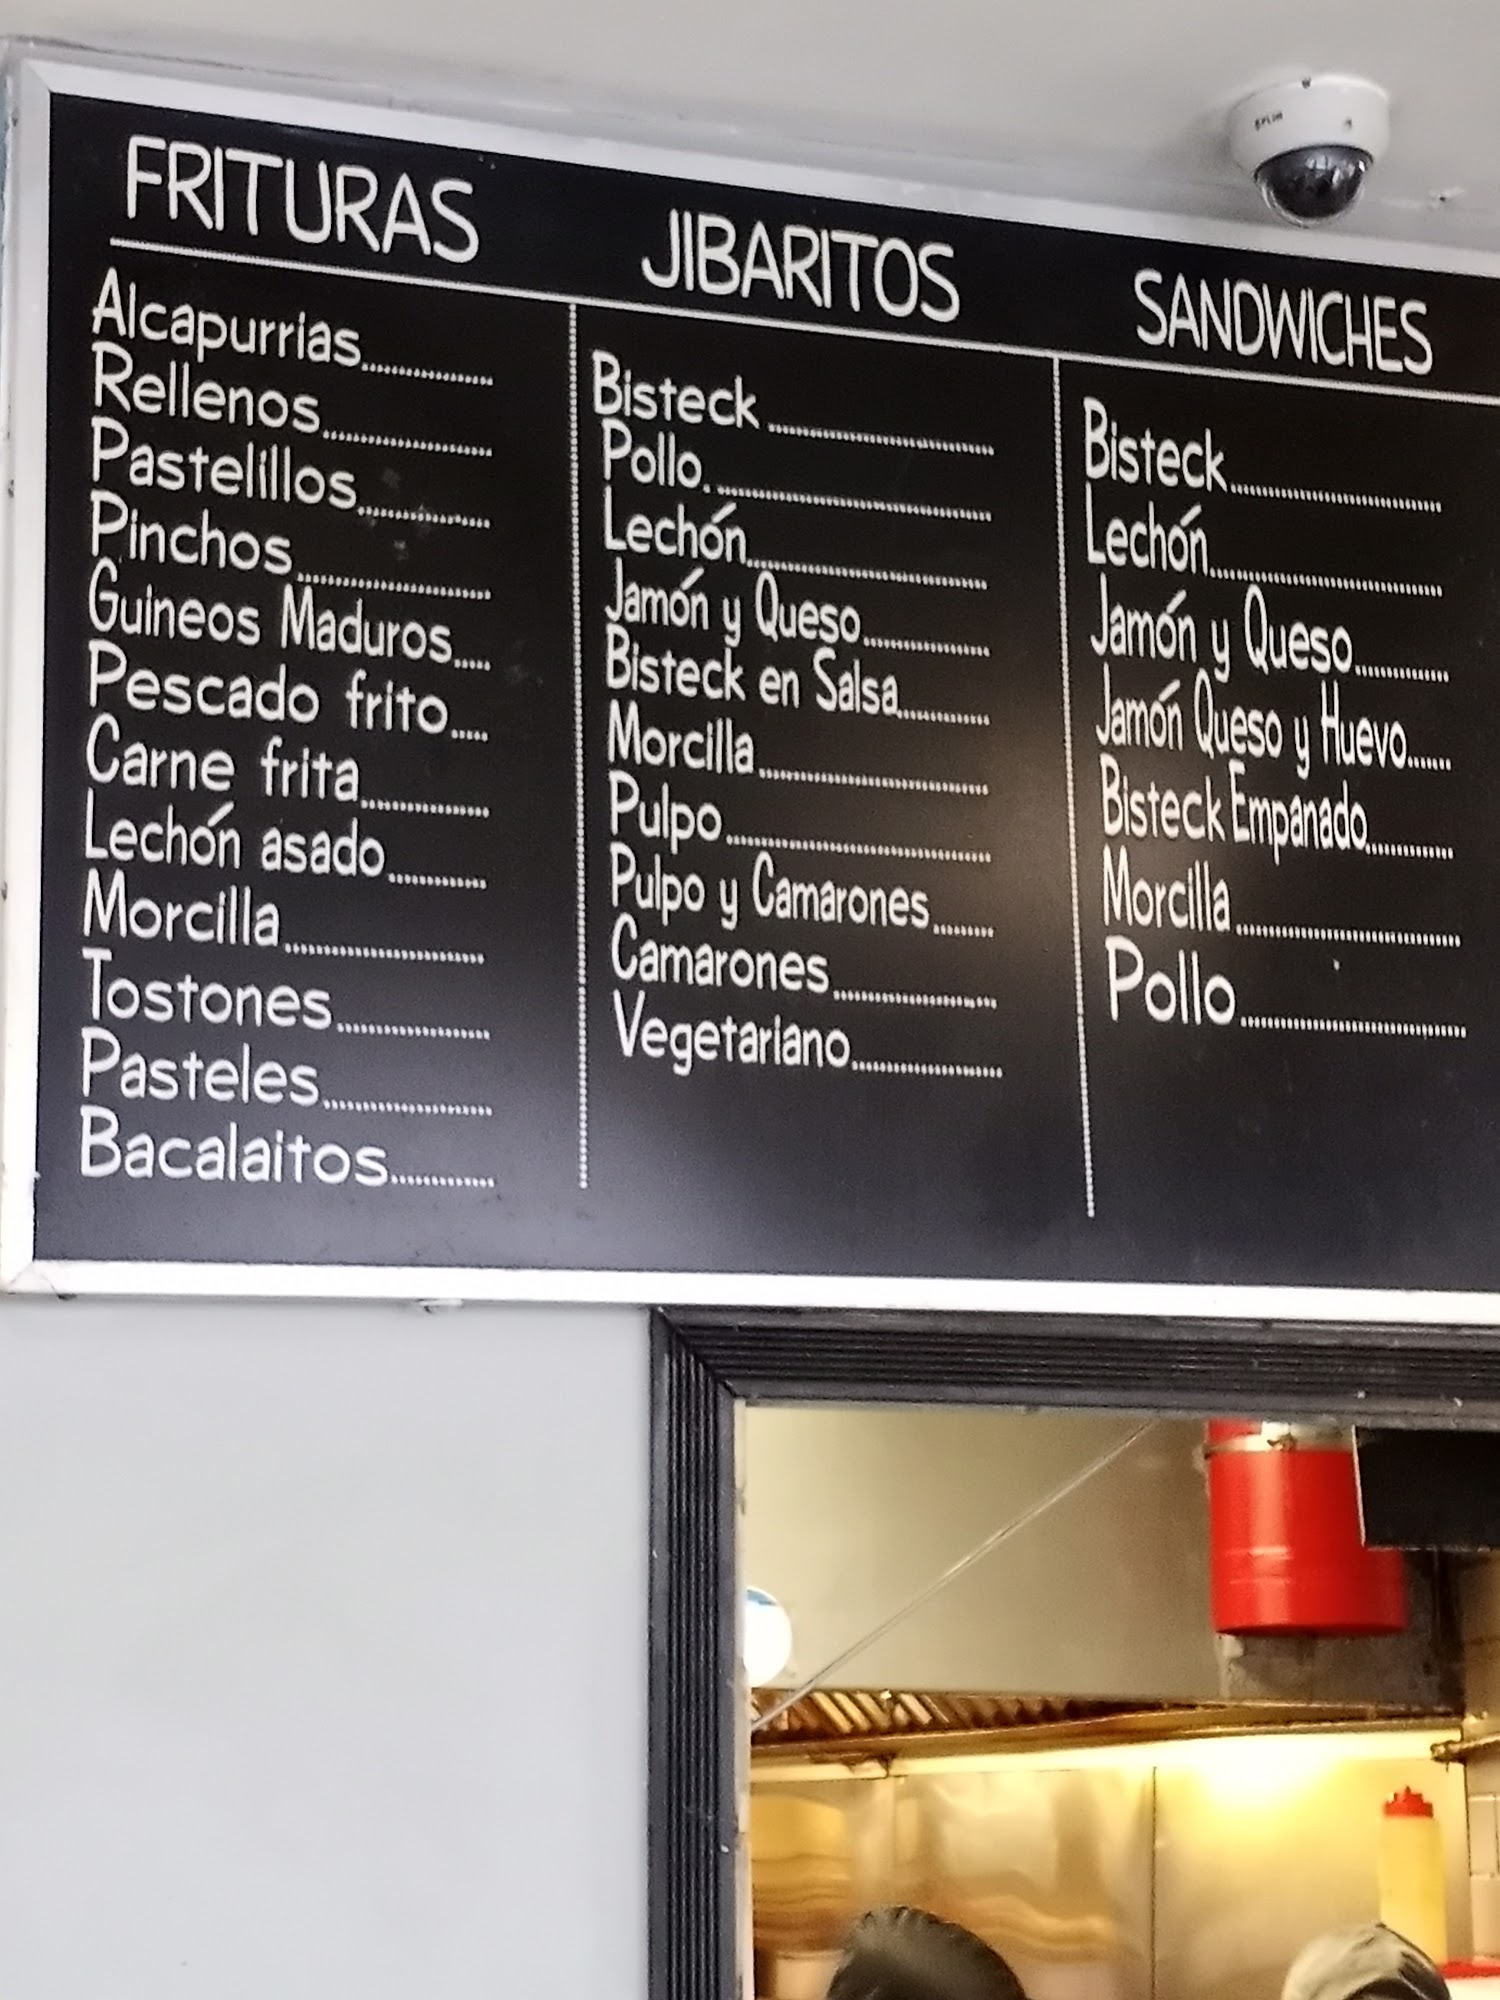 FRITURAS
Alcapurrias
Rellenos
Pastelillos
Pinchos
Guineos Maduros
Pescado frito
Carne frita
Lechón asado
Morcilla
Tostones
Pasteles
Bacalaitos
JIBARITOS
Bisteck
Pollo
Lechón
Jamón y Queso
Bisteck en Salsa
Morcilla
Pulpo
Pulpo y Camarones
Camarones
Vegetariano
SANDWICHES
Bisteck
Lechón
Jamón y Queso
Jamón Queso y Huevo
Bisteck Empanado
Morcilla
Pollo